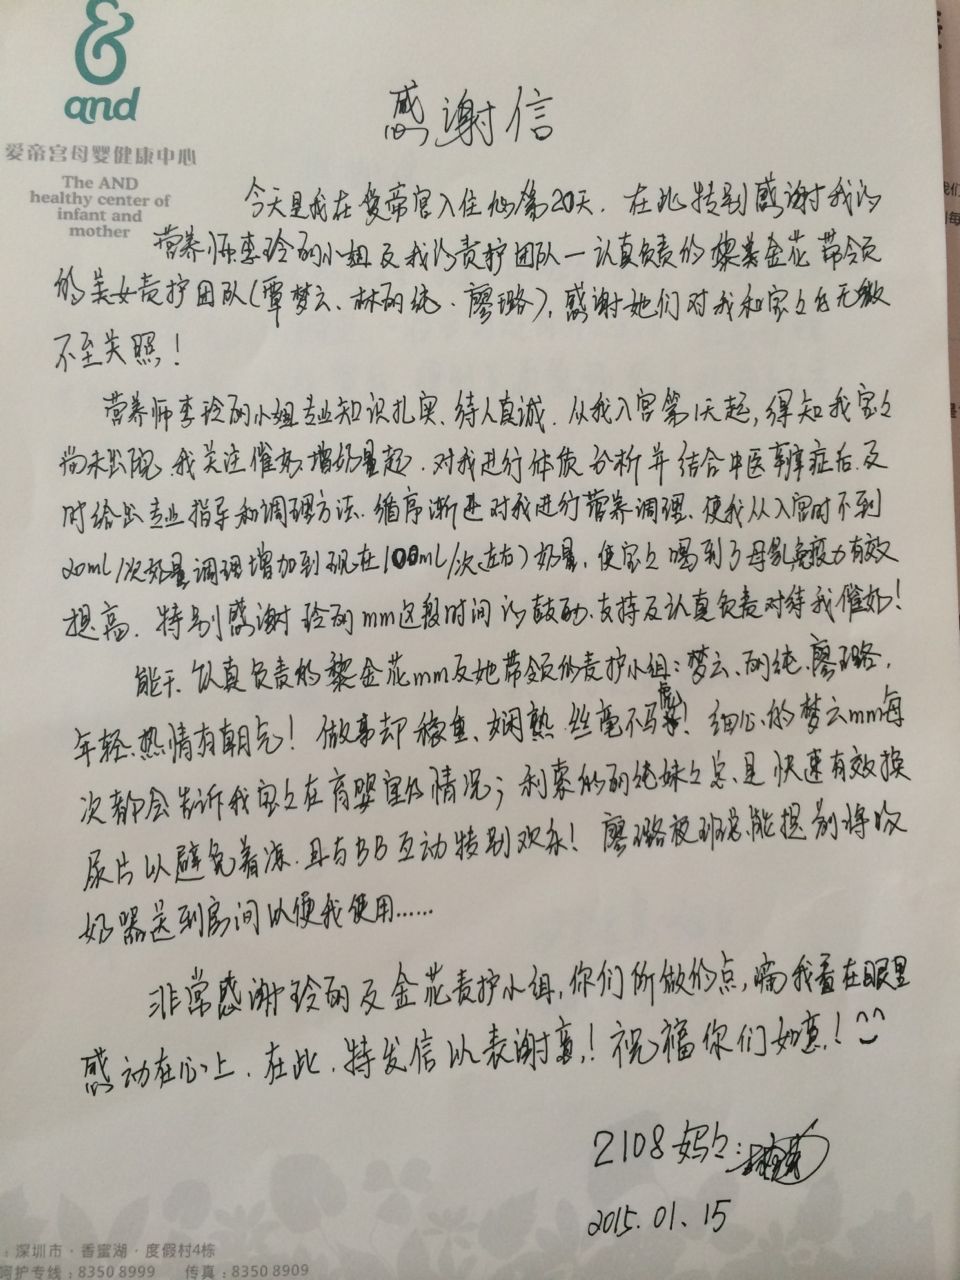 and
爱帝宫母婴健康中心
The AND
healthy center of
infant and
mother
感谢信
今天是我在爱帝宫入住的第20天．在此特别感谢我的
营养师李玲丽小姐及我的责护团队—认真负责的黎金花带领
的美女责护团队（覃梦云、林丽纯．廖璐），感谢她们对我和宝々的无微
不至关照！
营养师李玲丽小姐专业知识扎实、待人真诚．从我入宫第1天起，得知我宝々
尚未出院 我关注催奶增奶量起．对我进行体质分析并结合中医辨症后及
时给出专业指导和调理方法．循序渐进对我进行营养调理、使我从入宫时不到
20ml/次奶量调理增加到现在100ml/次(左右)奶量，使宝々喝到了母乳免疫力有效
提高．特别感谢玲丽mm这段时间的鼓励、支持及认真负责对待我催奶！
能干、认真负责的黎金花mm及她带领的责护小组：梦云、丽纯、廖璐，
年轻、热情有朝气！做事却稳重、娴熟．丝毫不马虎！细心的梦云mm每
次都会告诉我宝々在育婴室的情况；利索的丽纯妹々总是快速有效换
尿片以避免着凉．且与BB互动特别欢乐！廖璐夜班总能提前将吸
奶器送到房间以便我使用……
非常感谢玲丽及金花责护小组，你们所做的点滴我看在眼里
感动在心上．在此．特发信以表谢意！祝福你们如意！^^
2108妈々：
2015.01.15
：深圳市·香蜜湖·度假村4栋
呵护专线：8350 8999 传真：8350 8909